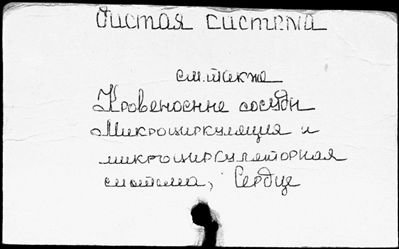 дистая система
см. также
Кровеносные сосуды
Микроциркуляция и
микроциркуляторная
система, Сердце